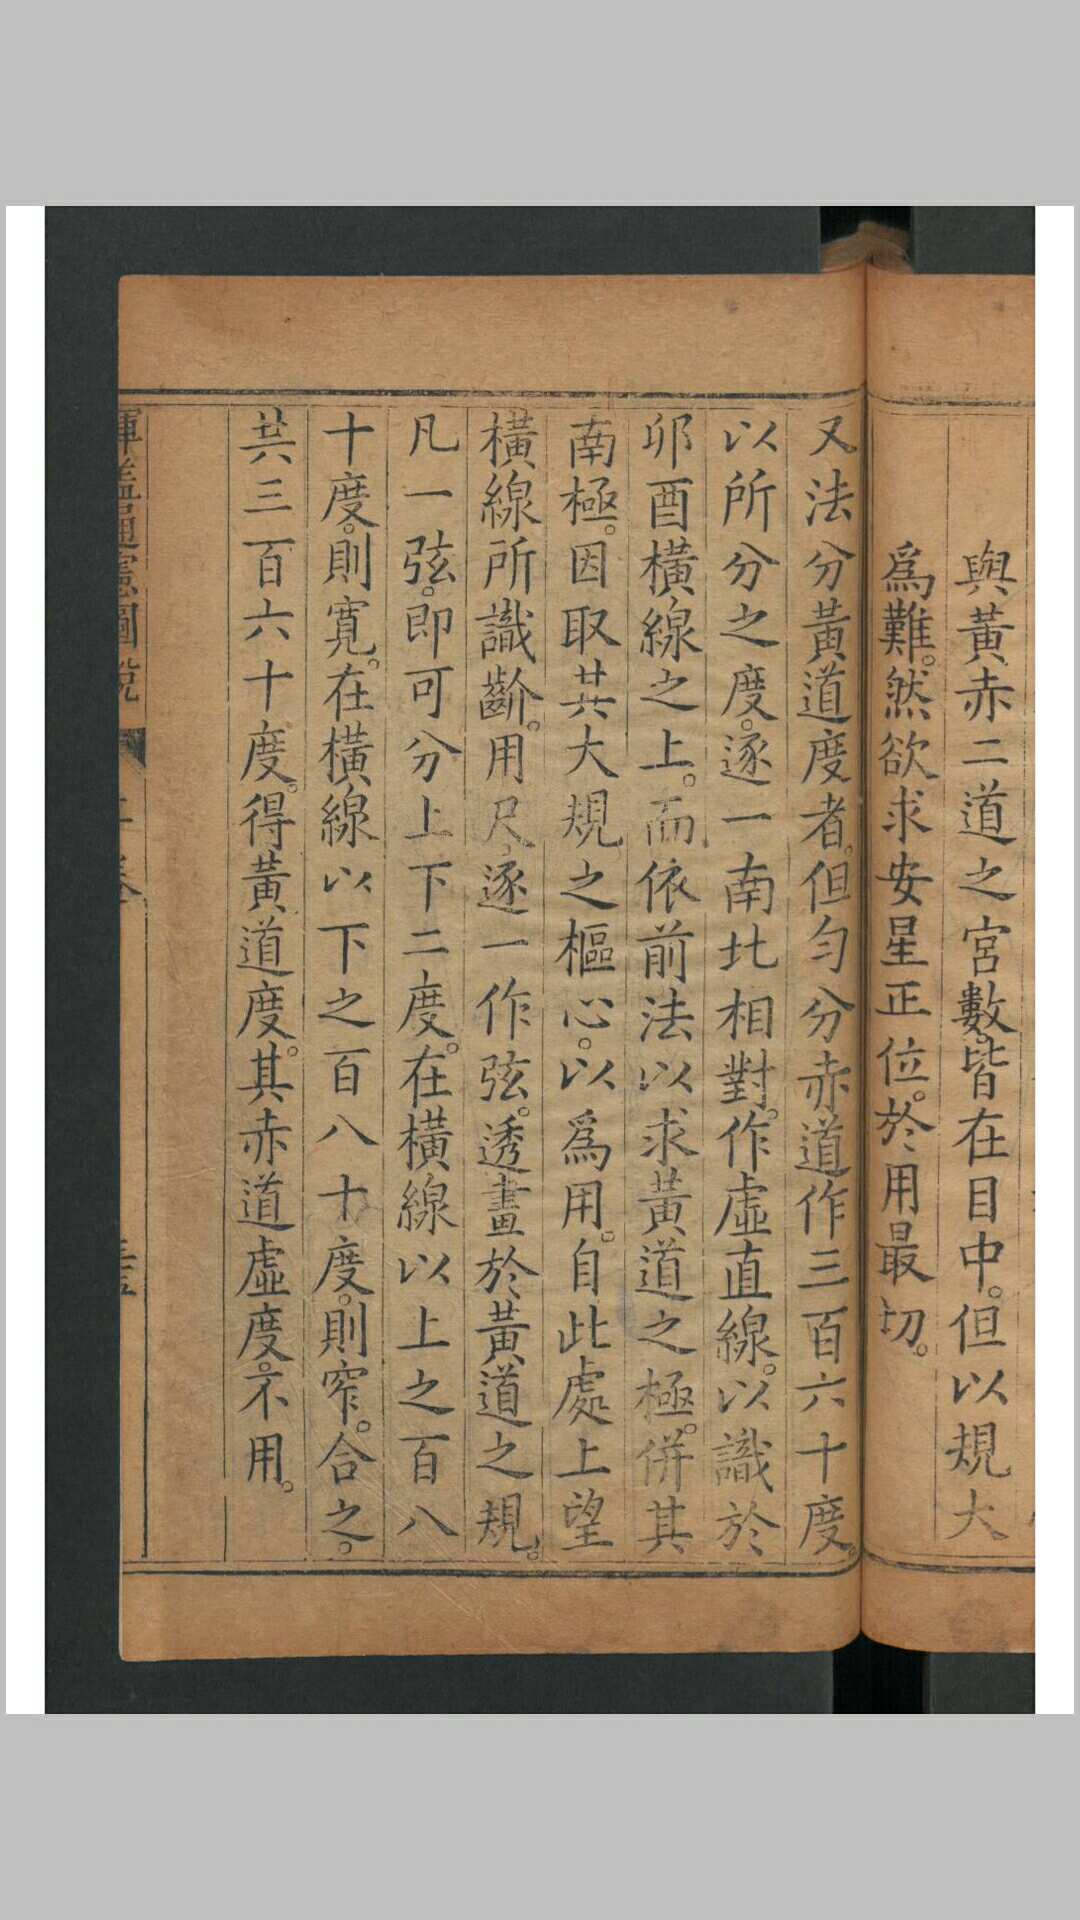 與黃赤二道之宮數。皆在目中。但以規大
爲難。然欲求安星正位。於用最切。
又法分黃道度者。但勻分赤道作三百六十度。
以所分之度。逐一南北相對。作虛直線。以識於
卯酉橫線之上。而依前法以求黃道之極。併其
南極。因取其大規之樞心。以爲用。自此處上望
橫線所識齡。用尺逐一作弦。透畫於黃道之規。
凡一弦。即可分上下二度。在橫線以上之百八
十度。則寬。在橫線以下之百八十度。則窄。合之。
共三百六十度。得黃道度。其赤道虛度。不用。
渾蓋通憲圖說
上卷